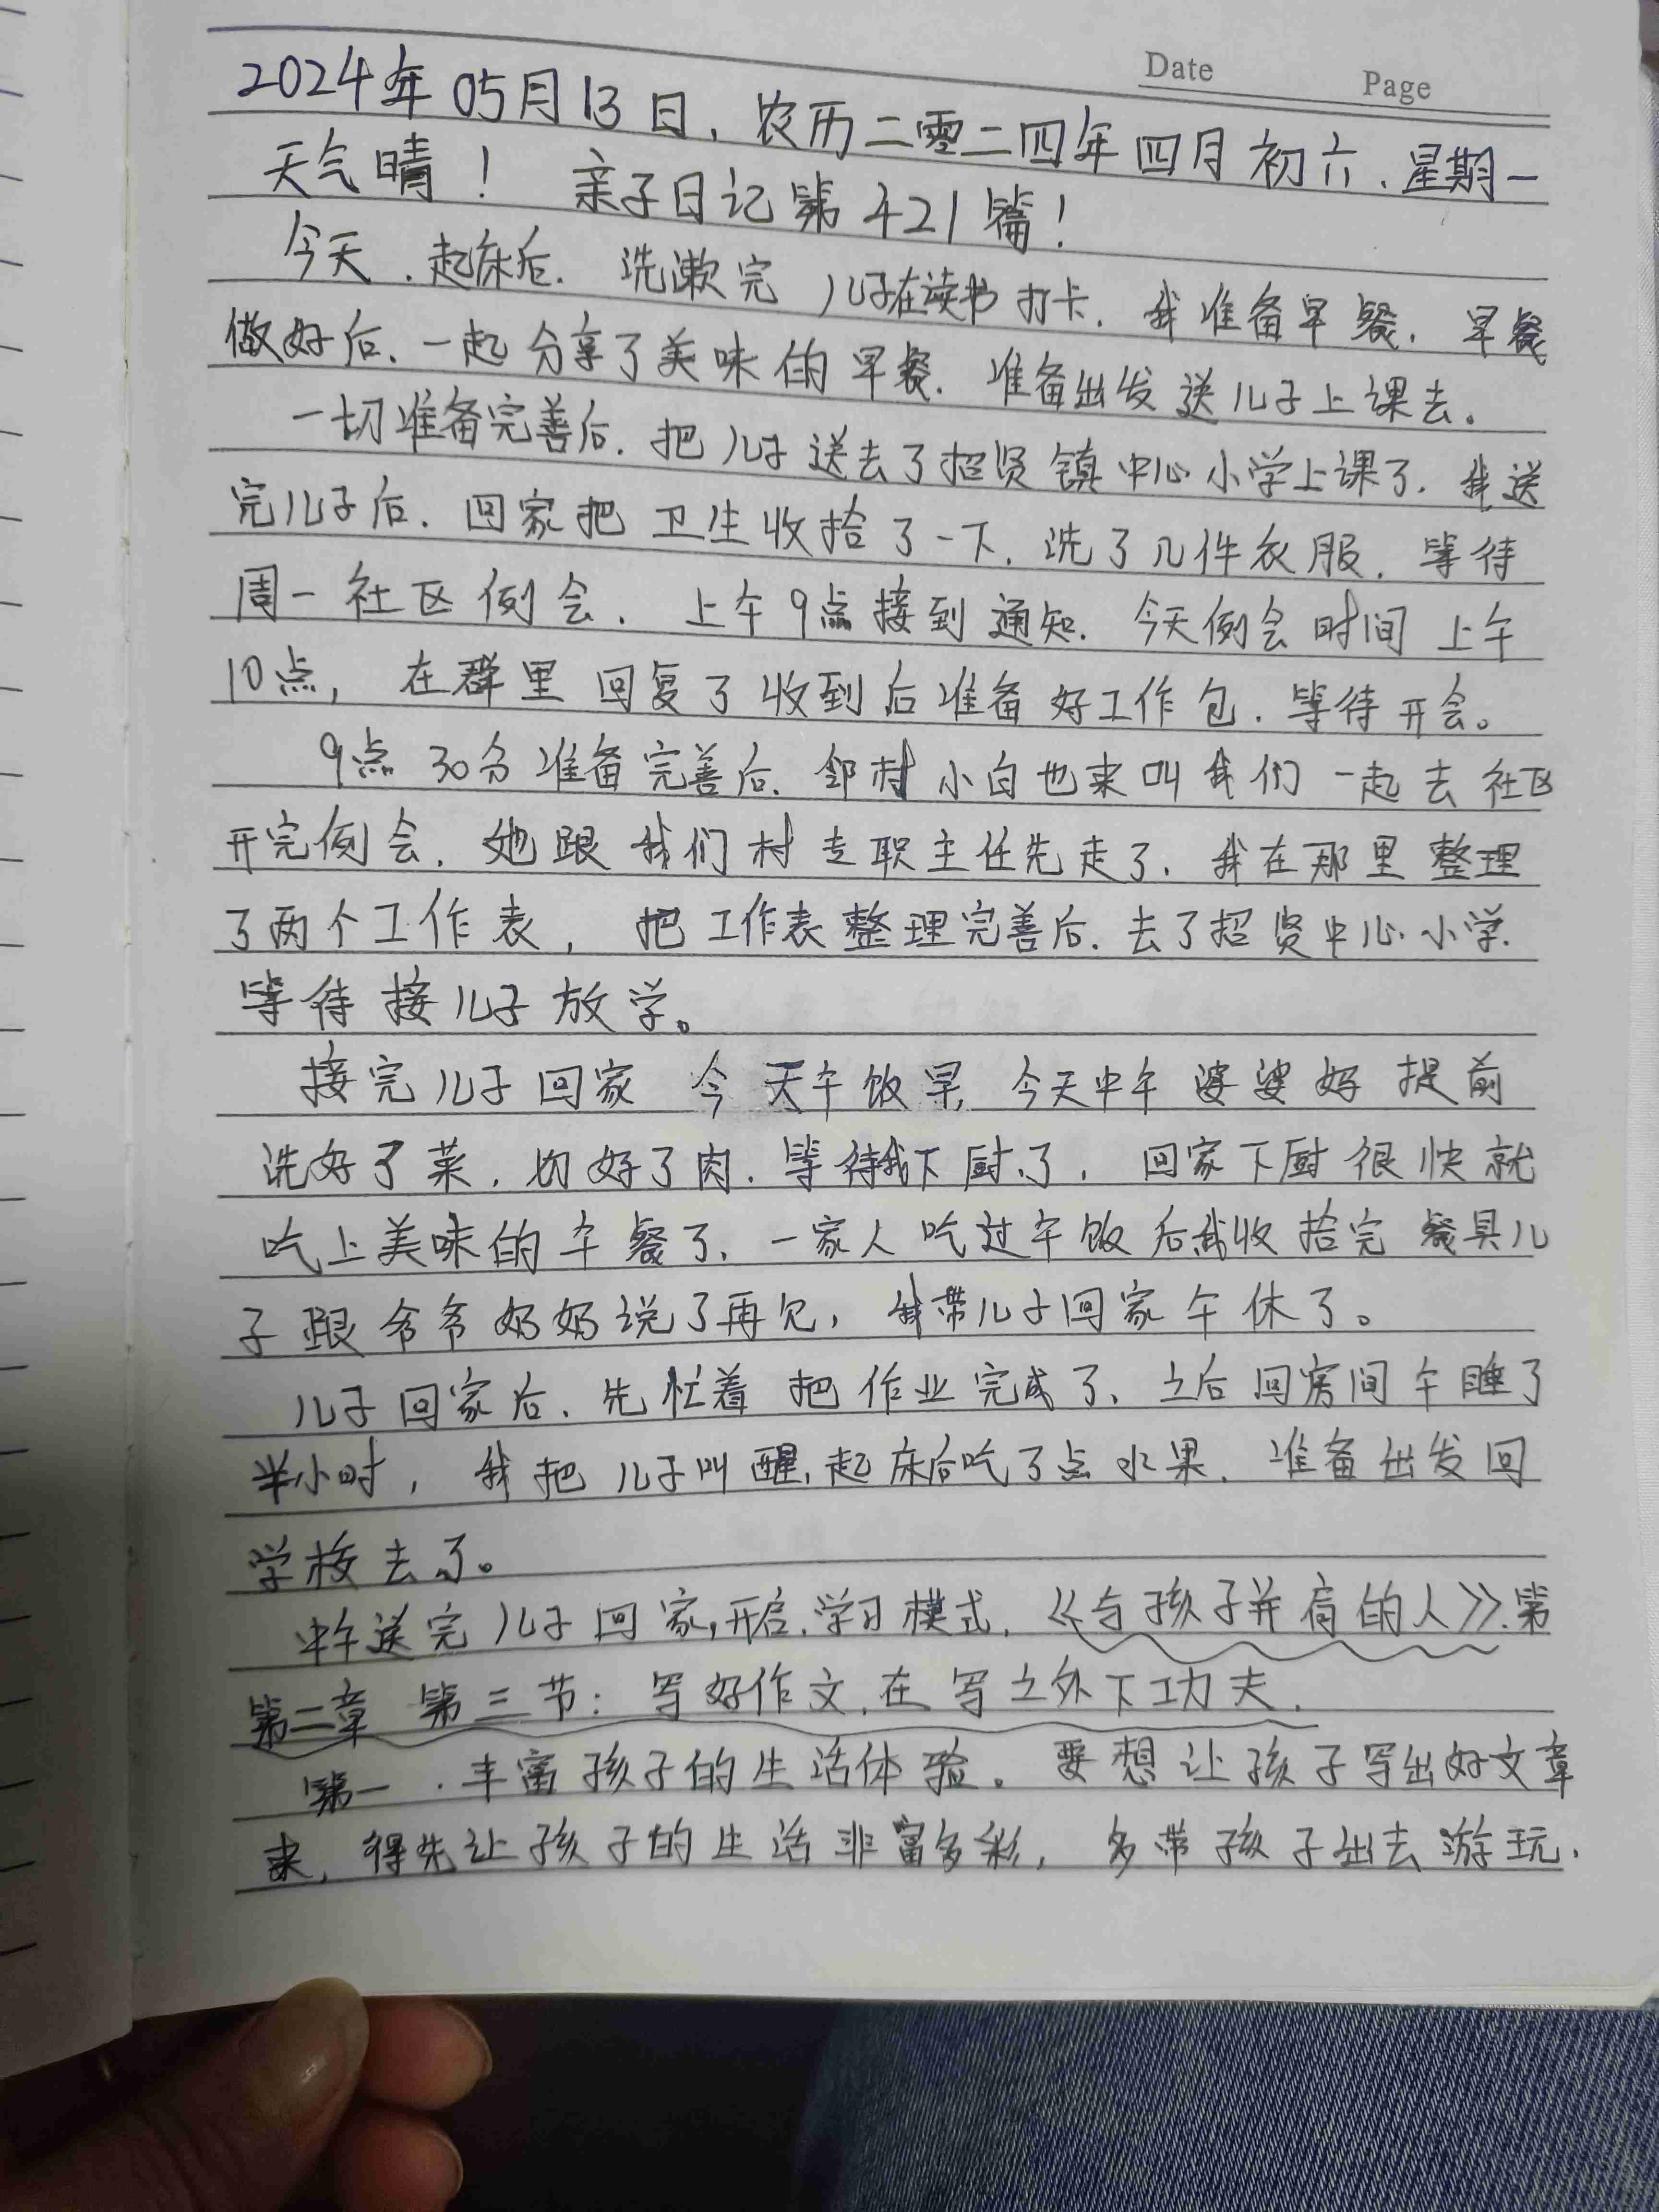 Date Page
2024年05月13日,农历二零二四年四月初六,星期一
天气晴! 亲子日记第421篇!
今天,起床后,洗漱完儿子在读书打卡,我准备早餐,早餐
做好后,一起分享了美味的早餐,准备出发送儿子上课去。
一切准备完善后,把儿子送去了招贤镇中心小学上课了,我送
完儿子后,回家把卫生收拾了一下,洗了几件衣服,等待
周一社区例会,上午9点接到通知,今天例会时间上午
10点,在群里回复了收到后准备好工作包,等待开会。
9点30分准备完善后,邻村小白也来叫我们一起去社区
开完例会,她跟我们村专职主任先走了,我在那里整理
了两个工作表,把工作表整理完善后,去了招贤中心小学,
等待接儿子放学。
接完儿子回家今天午饭早,今天中午婆婆妈提前
洗好了菜,切好了肉,等待我下厨了,回家下厨很快就
吃上美味的午餐了,一家人吃过午饭后我收拾完餐具儿
子跟爷爷奶奶说了再见,我带儿子回家午休了。
儿子回家后,先忙着把作业完成了,之后回房间午睡了
半小时,我把儿子叫醒,起床后吃了点水果,准备出发回
学校去了。
中午送完儿子回家,开启,学习模式,《与孩子并肩的人》,第
第二章 第三节:写好作文,在写之外下功夫,
第一,丰富孩子的生活体验。要想让孩子写出好文章
来,得先让孩子的生活非富多彩,多带孩子出去游玩,